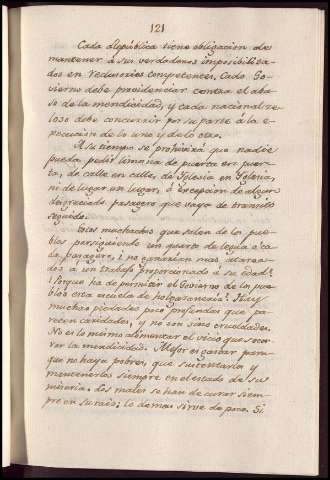 121
Cada República tiene obligacion de
mantener á sus verdaderos imposibilita-
dos en reclusorios competentes. Cada Go-
vierno debe providenciar contra el abu-
so de la mendicidad, y cada nacional ze-
loso debe concurrir por su parte á la e-
xecucion de lo uno y de lo otro.
A su tiempo se prohivirá que nadie
pueda pedir limosna de puerta en puer-
ta, de calle en calle, de Iglesia en Iglesia,
ni de lugar en lugar, á excepcion de algun
desgraciado pasagero que vaya de transito
seguido.
Estos muchachos que salen de los pue-
blos persiguiendo un quarto de legua á ca-
da pasagero, ¿no ganarian mas, atarea-
dos a un trabajo proporcionado á su edad?
¿Porque ha de permitir el Govierno de los pue-
blos esta escuela de holgazaneria? Hay
muchas piedades poco profundas que pa-
recen caridades, y no son sino crueldades.
No es lo mismo alimentar el vicio que socor-
rer la mendicidad. Mejor es gastar para
que no haya pobres, que sustentarla y
mantenerlos siempre en el estado de su
miseria. Los males se han de curar siem-
pre en su raiz; lo demas sirve de poco. Si